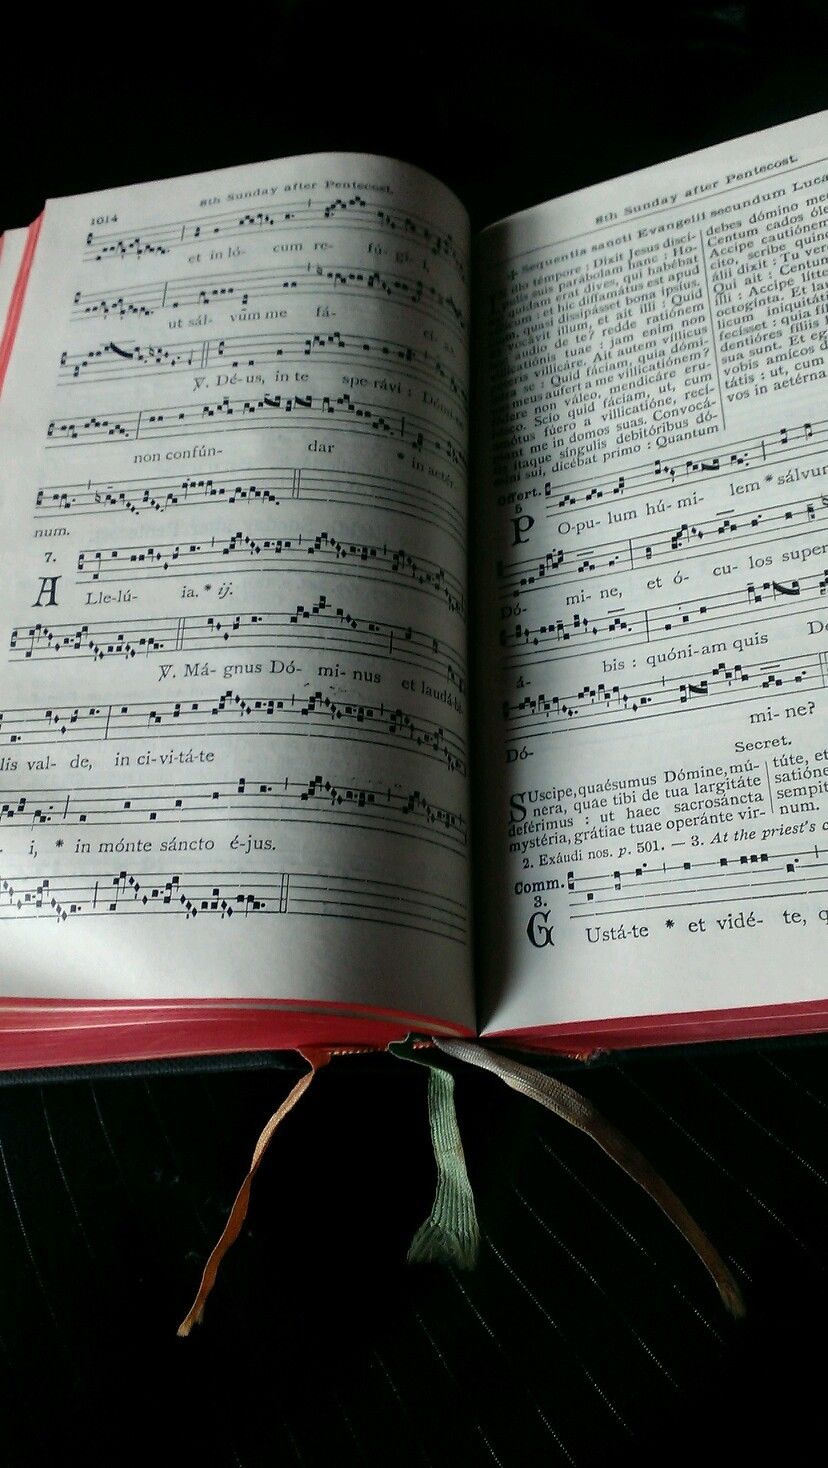 1014
8th Sunday after Pentecost.
et in ló- cum re- fú- gi- i,
ut sál- vum me fá- ci- as
℣. Dé-us, in te spe-rávi : Dómi-
non confún- dar * in aetér-
num.
7.
A Lle-lú- ia. * ij.
℣. Má- gnus Dó- mi- nus et laudá-bi-
lis val- de, in ci-vi-tá-te
i, * in mónte sáncto é-jus.
8th Sunday after Pentecost.
✠ Sequentia sancti Evangelii secundum Luca
illo témpore : Dixit Jesus disci-
pulis suis parábolam hanc : Ho-
quidam erat dives, qui habébat
: et hic diffamátus est apud
quasi dissipásset bona ipsíus.
vocávit illum, et ait illi : Quid
audio de te? redde ratiónem
tuae : jam enim non
villicáre. Ait autem víllicus
se : Quid fáciam, quia dómi-
meus aufert a me villicatiónem?
non váleo, mendicáre eru-
Scio quid fáciam, ut, cum
fúero a villicatióne, recí-
me in domos suas. Convocá-
itaque síngulis debitóribus dó-
sui, dicébat primo : Quantum
debes dómino me
Centum cados óle
Accipe cautiónem
cito, scribe quinq
álii dixit : Tu ver
Qui ait : Centum
illi : Accipe lítte
octogínta. Et lau
licum iniquitát
fecísset : quia fíli
dentióres fíliis l
sua sunt. Et eg
vobis amícos d
tátis : ut, cum
vos in aetérna
Offert.
5
P O-pu- lum hú- mi- lem * sálvum
Dó- mi- ne, et ó- cu- los super
á- bis : quóni-am quis Dé
Dó- mi- ne?
Secret.
SUscipe, quaésumus Dómine, mú-
nera, quae tibi de tua largitáte
deférimus : ut haec sacrosáncta
mystéria, grátiae tuae operánte vir-
túte, et
satióne
sempit
num.
2. Exáudi nos. p. 501. — 3. At the priest's c
Comm.
3.
G Ustá-te * et vidé- te, q